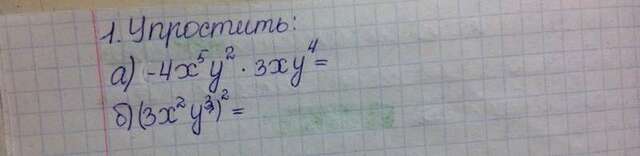 1. Упростить:
а) -4x⁵y² · 3xy⁴ =
б) (3x²y³)² =